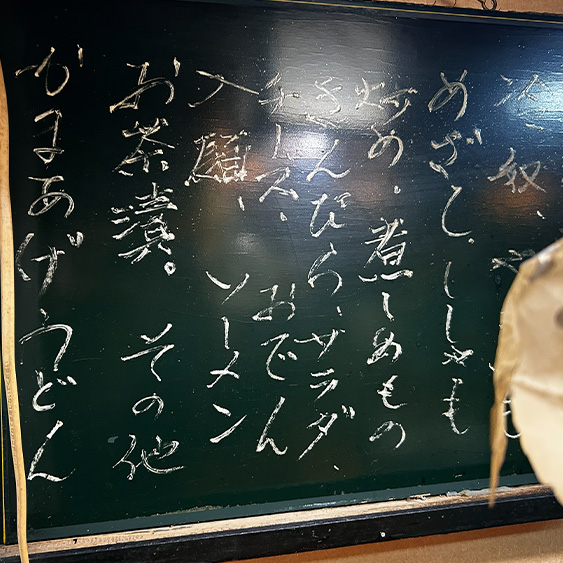 冷奴、
めざし、ししゃも
炒め、煮しめもの
きんぴら、サラダ、
チーズ、おでん
入麺、ソーメン
お茶漬。その他
かまあげうどん